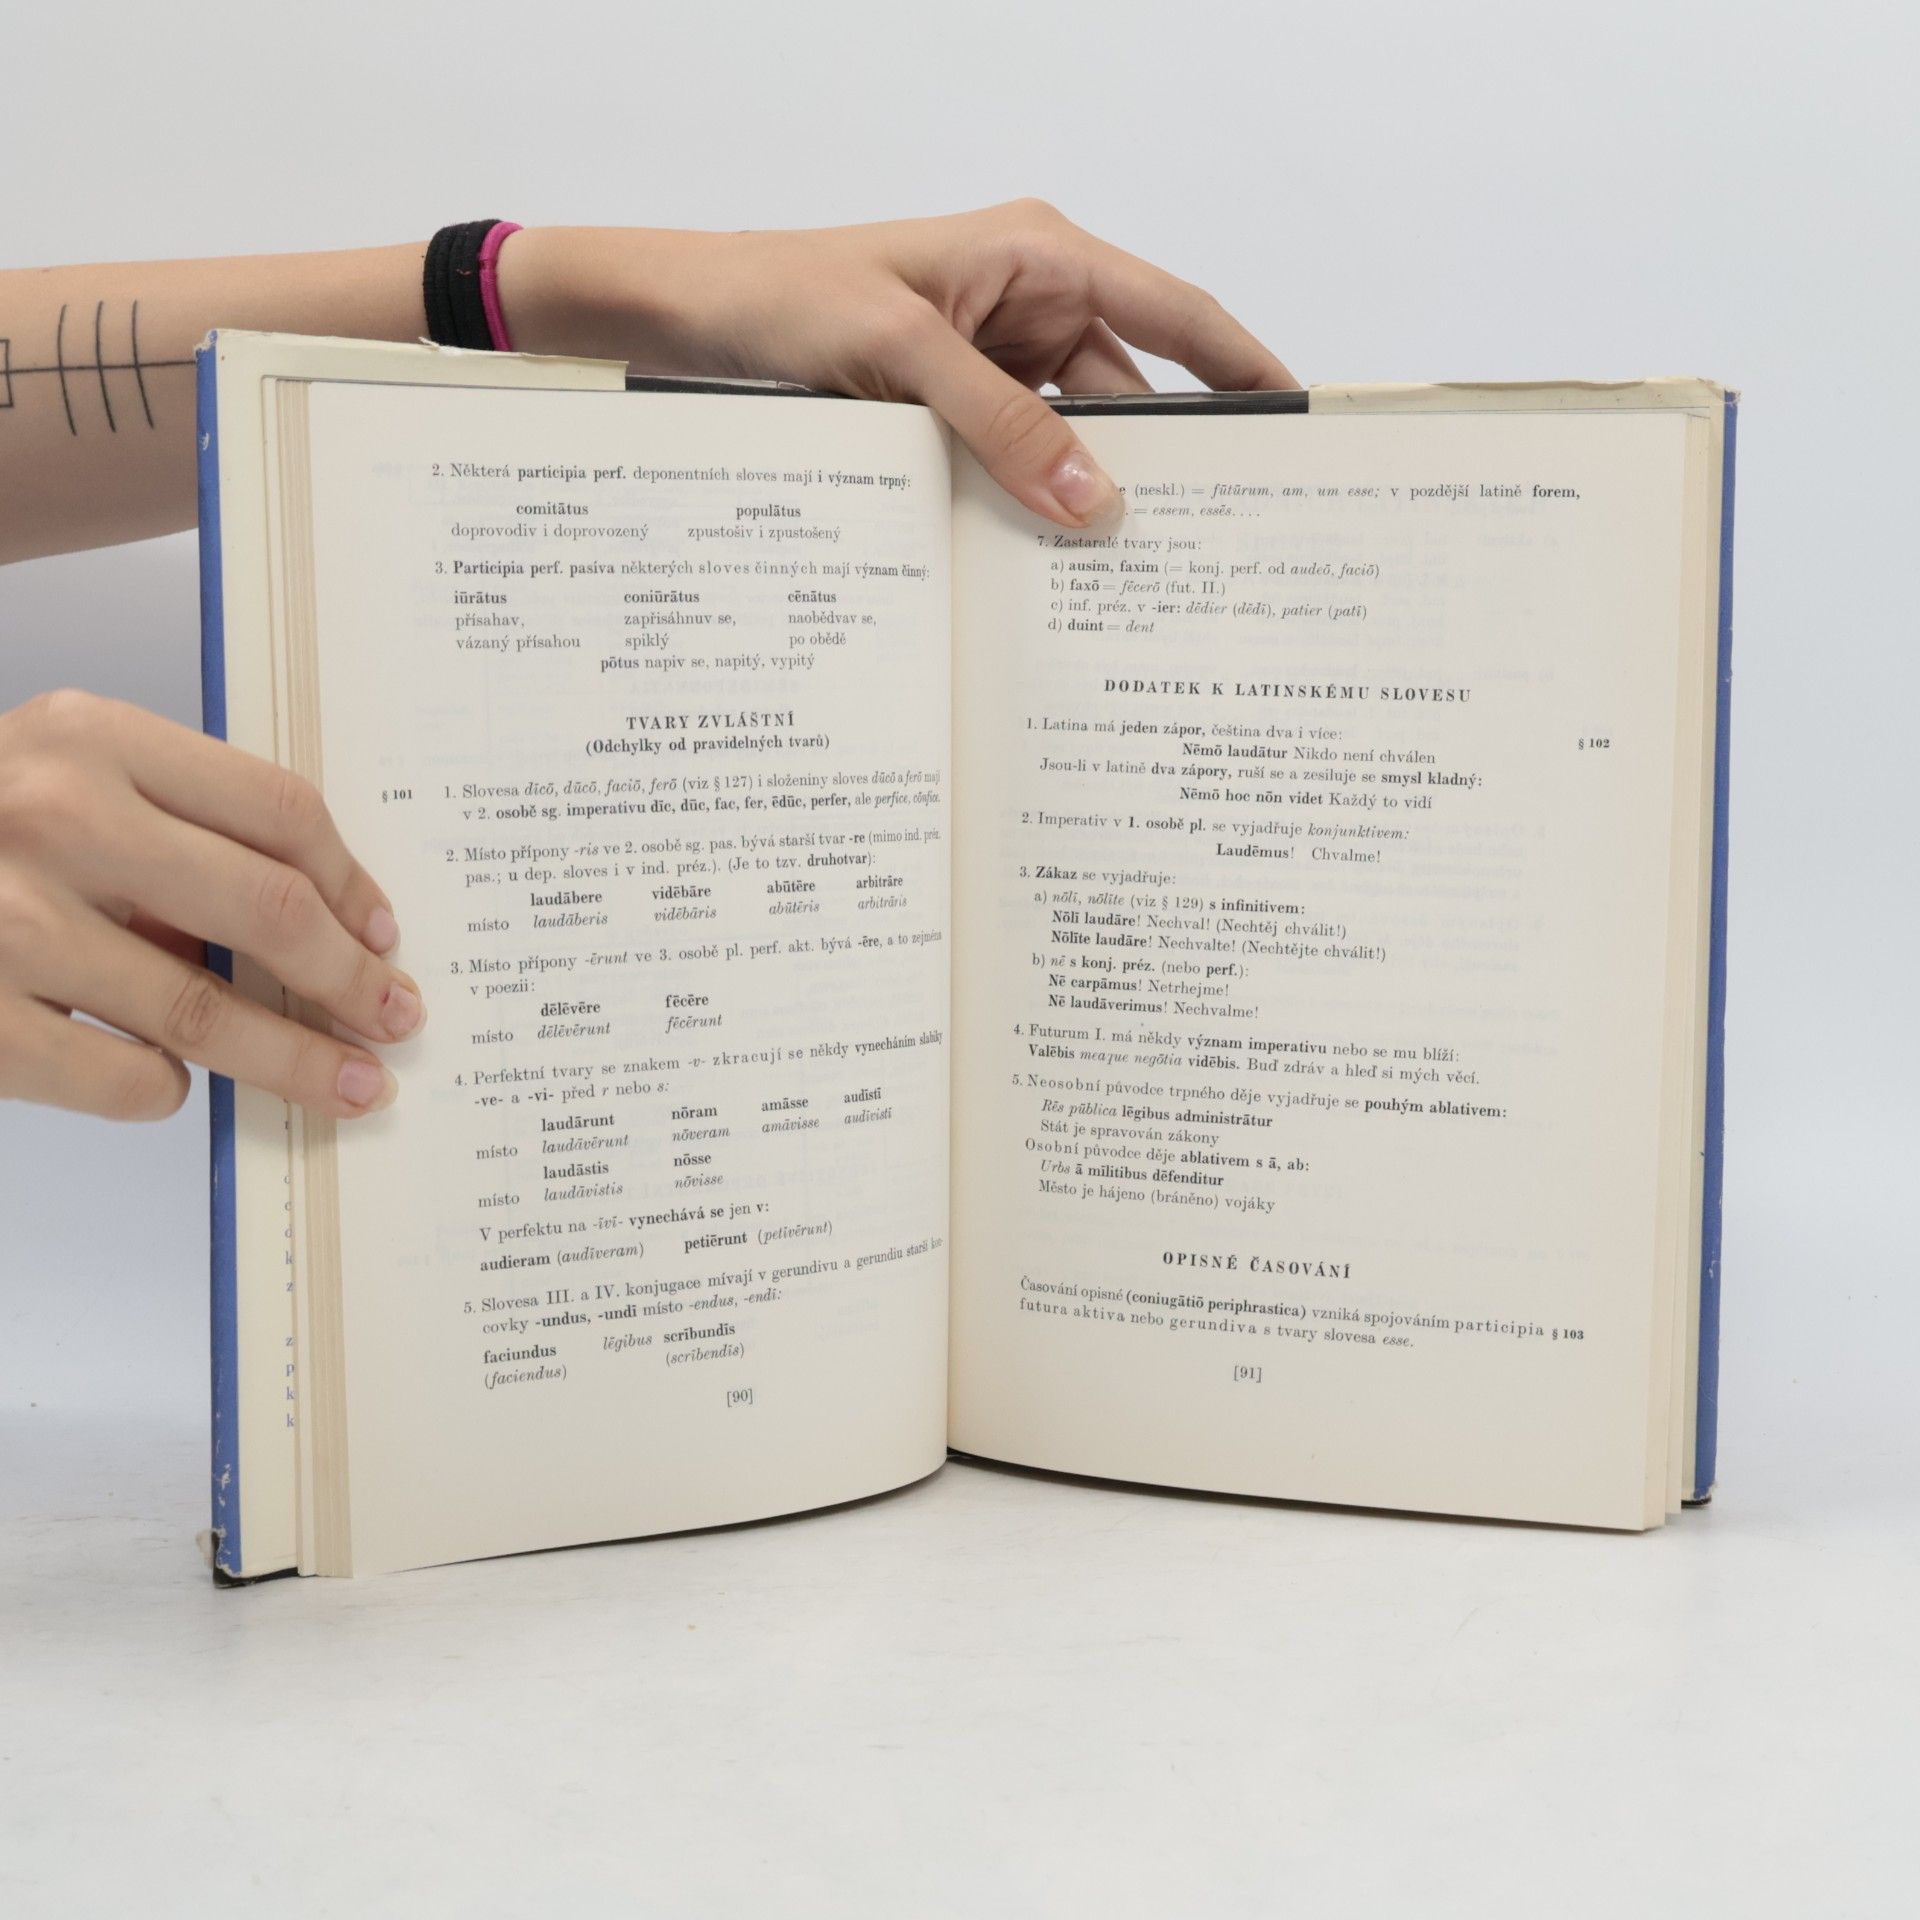 2. Některá participia perf. deponentních sloves mají i význam trpný:
comitātus populātus
doprovodiv i doprovozený zpustošiv i zpustošený
3. Participia perf. pasíva některých sloves činných mají význam činný:
iūrātus coniūrātus cēnātus
přísahav, zapřisáhnuv se, naobědvav se,
vázaný přísahou spiklý po obědě
pōtus napiv se, napitý, vypitý
TVARY ZVLÁŠTNÍ
(Odchylky od pravidelných tvarů)
§ 101 1. Slovesa dīcō, dūcō, faciō, ferō (viz § 127) i složeniny sloves dūcō a ferō mají
v 2. osobě sg. imperativu dīc, dūc, fac, fer, ēdūc, perfer, ale perfice, cōnfice.
2. Místo přípony -ris ve 2. osobě sg. pas. bývá starší tvar -re (mimo ind. préz.
pas.; u dep. sloves i v ind. préz.). (Je to tzv. druhotvar):
laudābere vidēbāre abūtēre arbitrāre
místo laudāberis vidēbāris abūtēris arbitrāris
3. Místo přípony -ērunt ve 3. osobě pl. perf. akt. bývá -ēre, a to zejména
v poezii:
dēlēvēre fēcēre
místo dēlēvērunt fēcērunt
4. Perfektní tvary se znakem -v- zkracují se někdy vynecháním slabiky
-ve- a -vi- před r nebo s:
laudārunt nōram amāsse audīstī
místo laudāvērunt nōveram amāvisse audīvistī
laudāstis nōsse
místo laudāvistis nōvisse
V perfektu na -īvī- vynechává se jen v:
audieram (audīveram) petiērunt (petīvērunt)
5. Slovesa III. a IV. konjugace mívají v gerundivu a gerundiu starší kon-
covky -undus, -undī místo -endus, -endī:
faciundus lēgibus scrībundīs
(faciendus) (scrībendīs)
[90]
e (neskl.) = fūtūrum, am, um esse; v pozdější latině forem,
. = essem, essēs. . . .
7. Zastaralé tvary jsou:
a) ausim, faxim (= konj. perf. od audeō, faciō)
b) faxō = fēcerō (fut. II.)
c) inf. préz. v -ier: dēdier (dēdī), patier (patī)
d) duint = dent
DODATEK K LATINSKÉMU SLOVESU
1. Latina má jeden zápor, čeština dva i více: § 102
Nēmō laudātur Nikdo není chválen
Jsou-li v latině dva zápory, ruší se a zesiluje se smysl kladný:
Nēmō hoc nōn videt Každý to vidí
2. Imperativ v 1. osobě pl. se vyjadřuje konjunktivem:
Laudēmus! Chvalme!
3. Zákaz se vyjadřuje:
a) nōlī, nōlīte (viz § 129) s infinitivem:
Nōlī laudāre! Nechval! (Nechtěj chválit!)
Nōlīte laudāre! Nechvalte! (Nechtějte chválit!)
b) nē s konj. préz. (nebo perf.):
Nē carpāmus! Netrhejme!
Nē laudāverimus! Nechvalme!
4. Futurum I. má někdy význam imperativu nebo se mu blíží:
Valēbis meaque negōtia vidēbis. Buď zdráv a hleď si mých věcí.
5. Neosobní původce trpného děje vyjadřuje se pouhým ablativem:
Rēs pūblica lēgibus administrātur
Stát je spravován zákony
Osobní původce děje ablativem s ā, ab:
Urbs ā mīlitibus dēfenditur
Město je hájeno (bráněno) vojáky
OPISNÉ ČASOVÁNÍ
Časování opisné (coniugātiō periphrastica) vzniká spojováním participia § 103
futura aktiva nebo gerundiva s tvary slovesa esse.
[91]